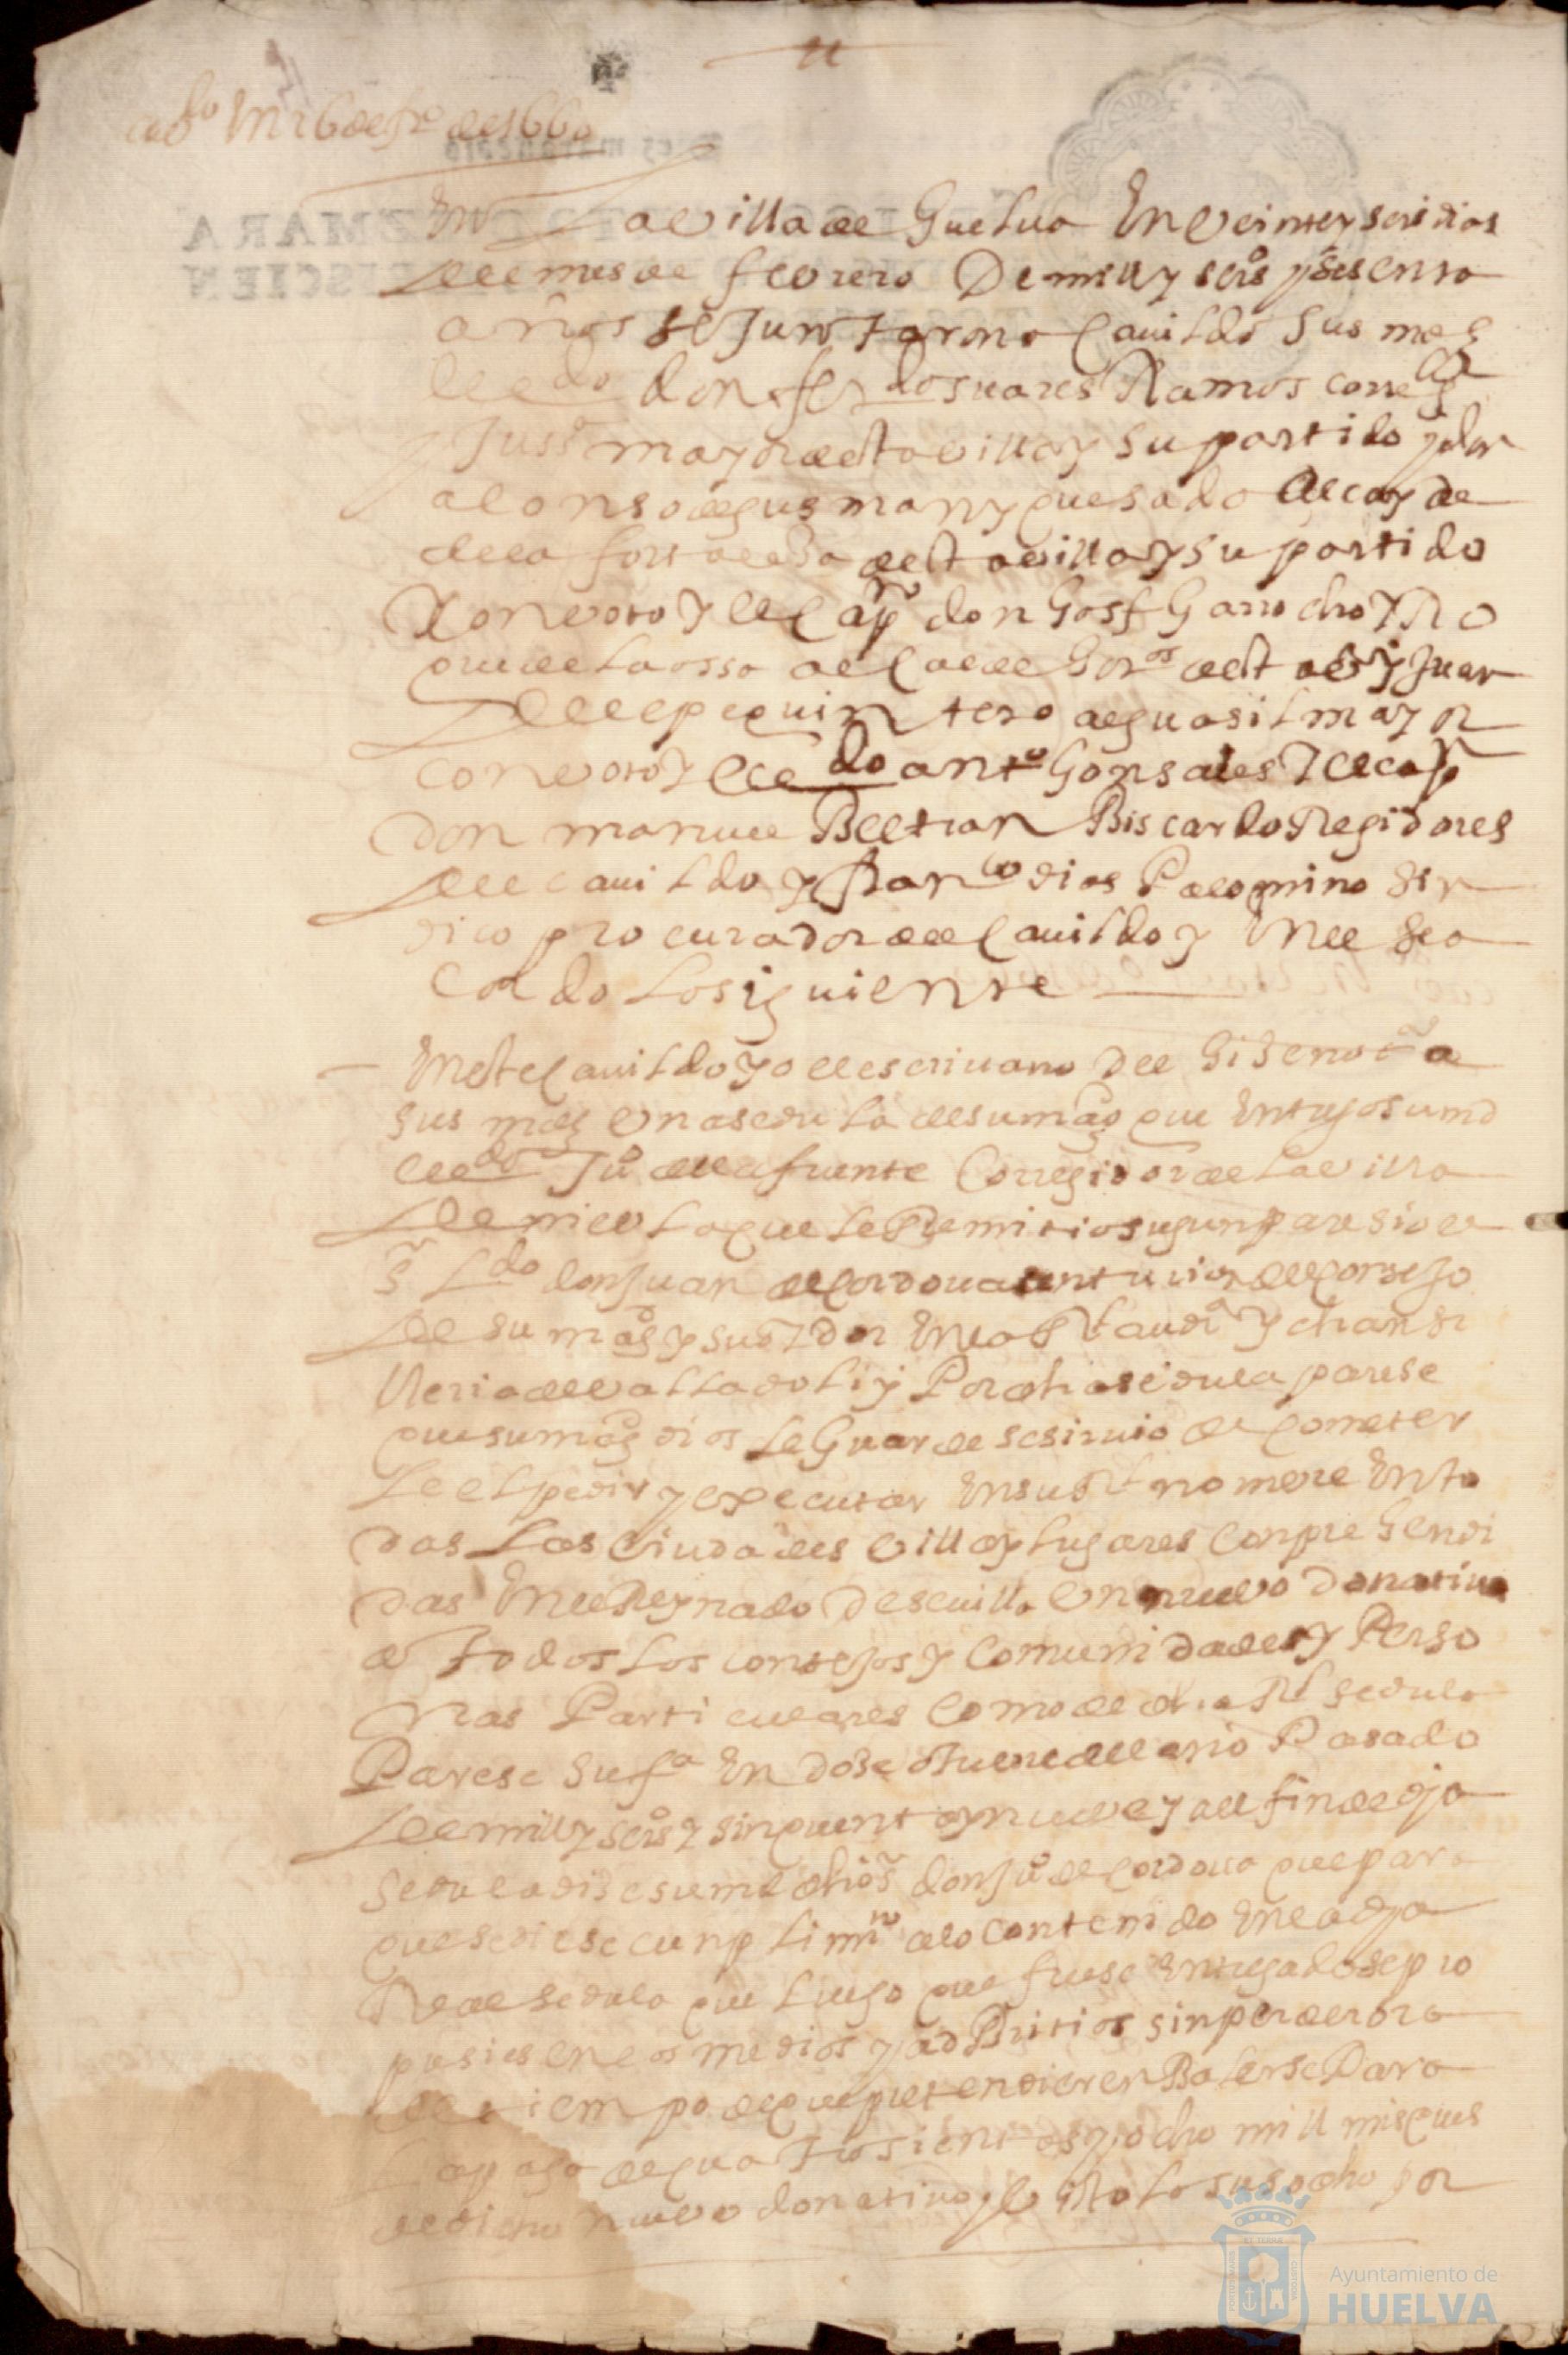 cabdo En 26 de fro de 1660
En La villa de Guelva En veinte y seis dias
del mes de febrero De mill y seisos y sesenta
años se Juntaron a Cauildo Sus mds
el ldo don ferdo suares Ramos corregr
y Jussa mayor desta villa y su partido y don
alonso de gusman y quesada alcayde
de la fortaleza desta villa y su partido
Con voto y el Capn don Josf Garrocho y No
que de la ossa alcalde hordos desta va y Juan
de lepe quintero alguasil mayor
con voto y el ldo anto Gonsales y el capn
don manuel Beltran Biscardo Regidores
del cauildo y franco dias Palomino sin
dico procurador del Cauildo y En el se a
cordo lo siguiente
En este Cauildo yo el escriuano del hise notoria a
sus mds Una sedula de su magd que Entrego su md
el ldo Ju de la fuente Corregidor de la villa
de niebla que le Remitio segun paresio el
sr Ldo don Juan de Cordoua senturion del Consejo
de su magd y su oydor En la Rl audia y chansi
lleria de valladolid y Por dha sedula parese
que su magd dios le Guarde se siruio de Cometer
le el pedir y executar En su Rl nombre En to
das Las Ciudades villas y lugares Conprehendi
das En el Reynado De seuilla Un nuevo Donatiuo
a todos los consejos y Comunidades y Perso
nas Particulares Como de dha Rl sedula
Parese su fa En dose de otubre del año Pasado
de mill y seisos y sinquenta y nueve y al fin de dja
sedula dise su md dho sr don Ju de Cordoua que para
que se diese cunplimto a lo contenido En la dja
Real sedula que luego que fuese Entregada se pro
pusiesen los medios y adbitrios sin perder ora
de tiempo de que pretendieren Balerse Para
La paga de quatrosientos y ocho mill mrs ques
de dicho nuevo donatiuo y visto lo susodho por
Ayuntamiento de
HUELVA